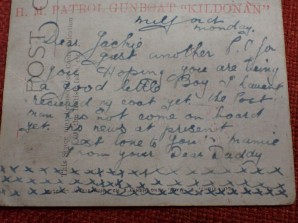 H. M. PATROL GUNBOAT "KILDONAN"
POST C
Milford
Monday.
Dear Jackie
Just another P.C. for
you Hoping you are being
a good little Boy I havent
recieved my coat yet the Post
man has not come on board
yet. no news at present
Best love to you & Mamie
from your Dear Daddy
x x x x x x x x x x x x x x x x x x x
x x x x x x x x x x x x x x x x x x x